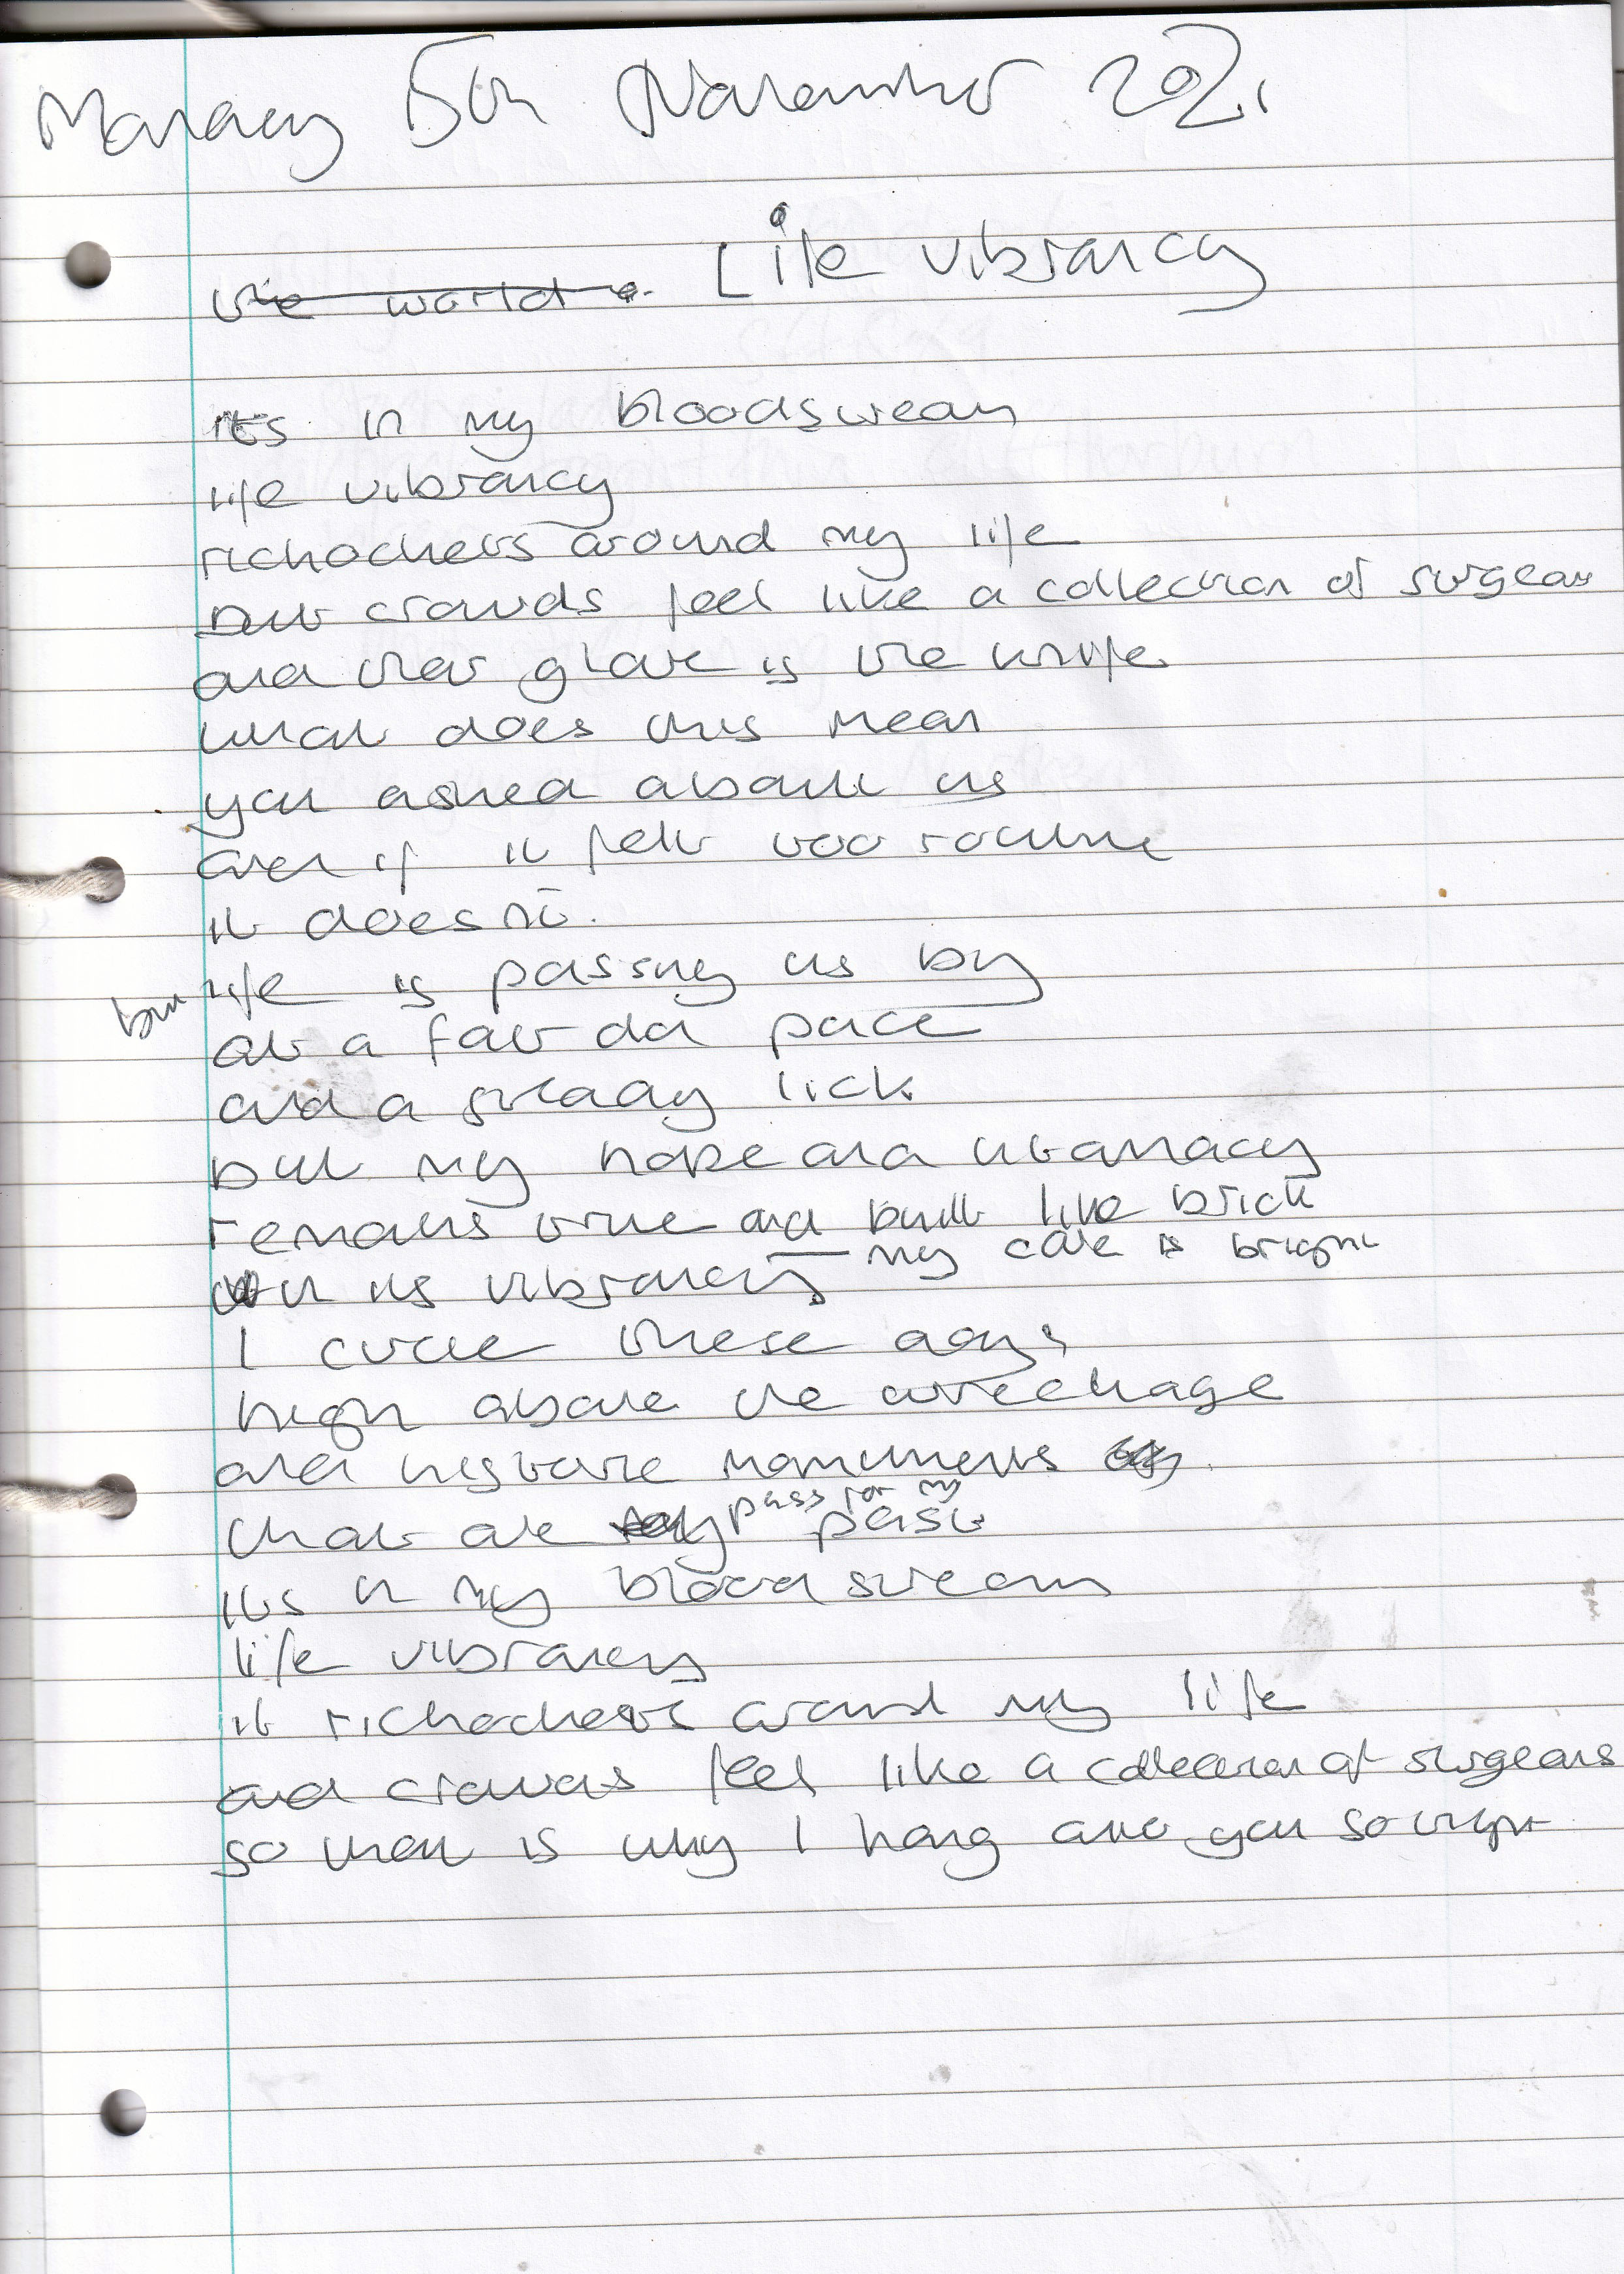 Monday 5th November 2021
the world is
Life vibrancy
its in my bloodstream
life vibrancy
richochets around my life
but crowds feel like a collection of surgeons
and their glare is the knife
what does this mean
you asked about us
even if it felt too routine
it doesn't.
but life is passing us by
at a fair old pace
and a steady lick
but my hope and
remains true and built like brick
in its vibrancy my core is bright
I circle these days
high above the wreckage
and historic monuments
that are pass for my past
its in my bloodstream
life vibrancy
it richochets around my life
and crowds feel like a collection of surgeons
so that is why I hang onto you so tight